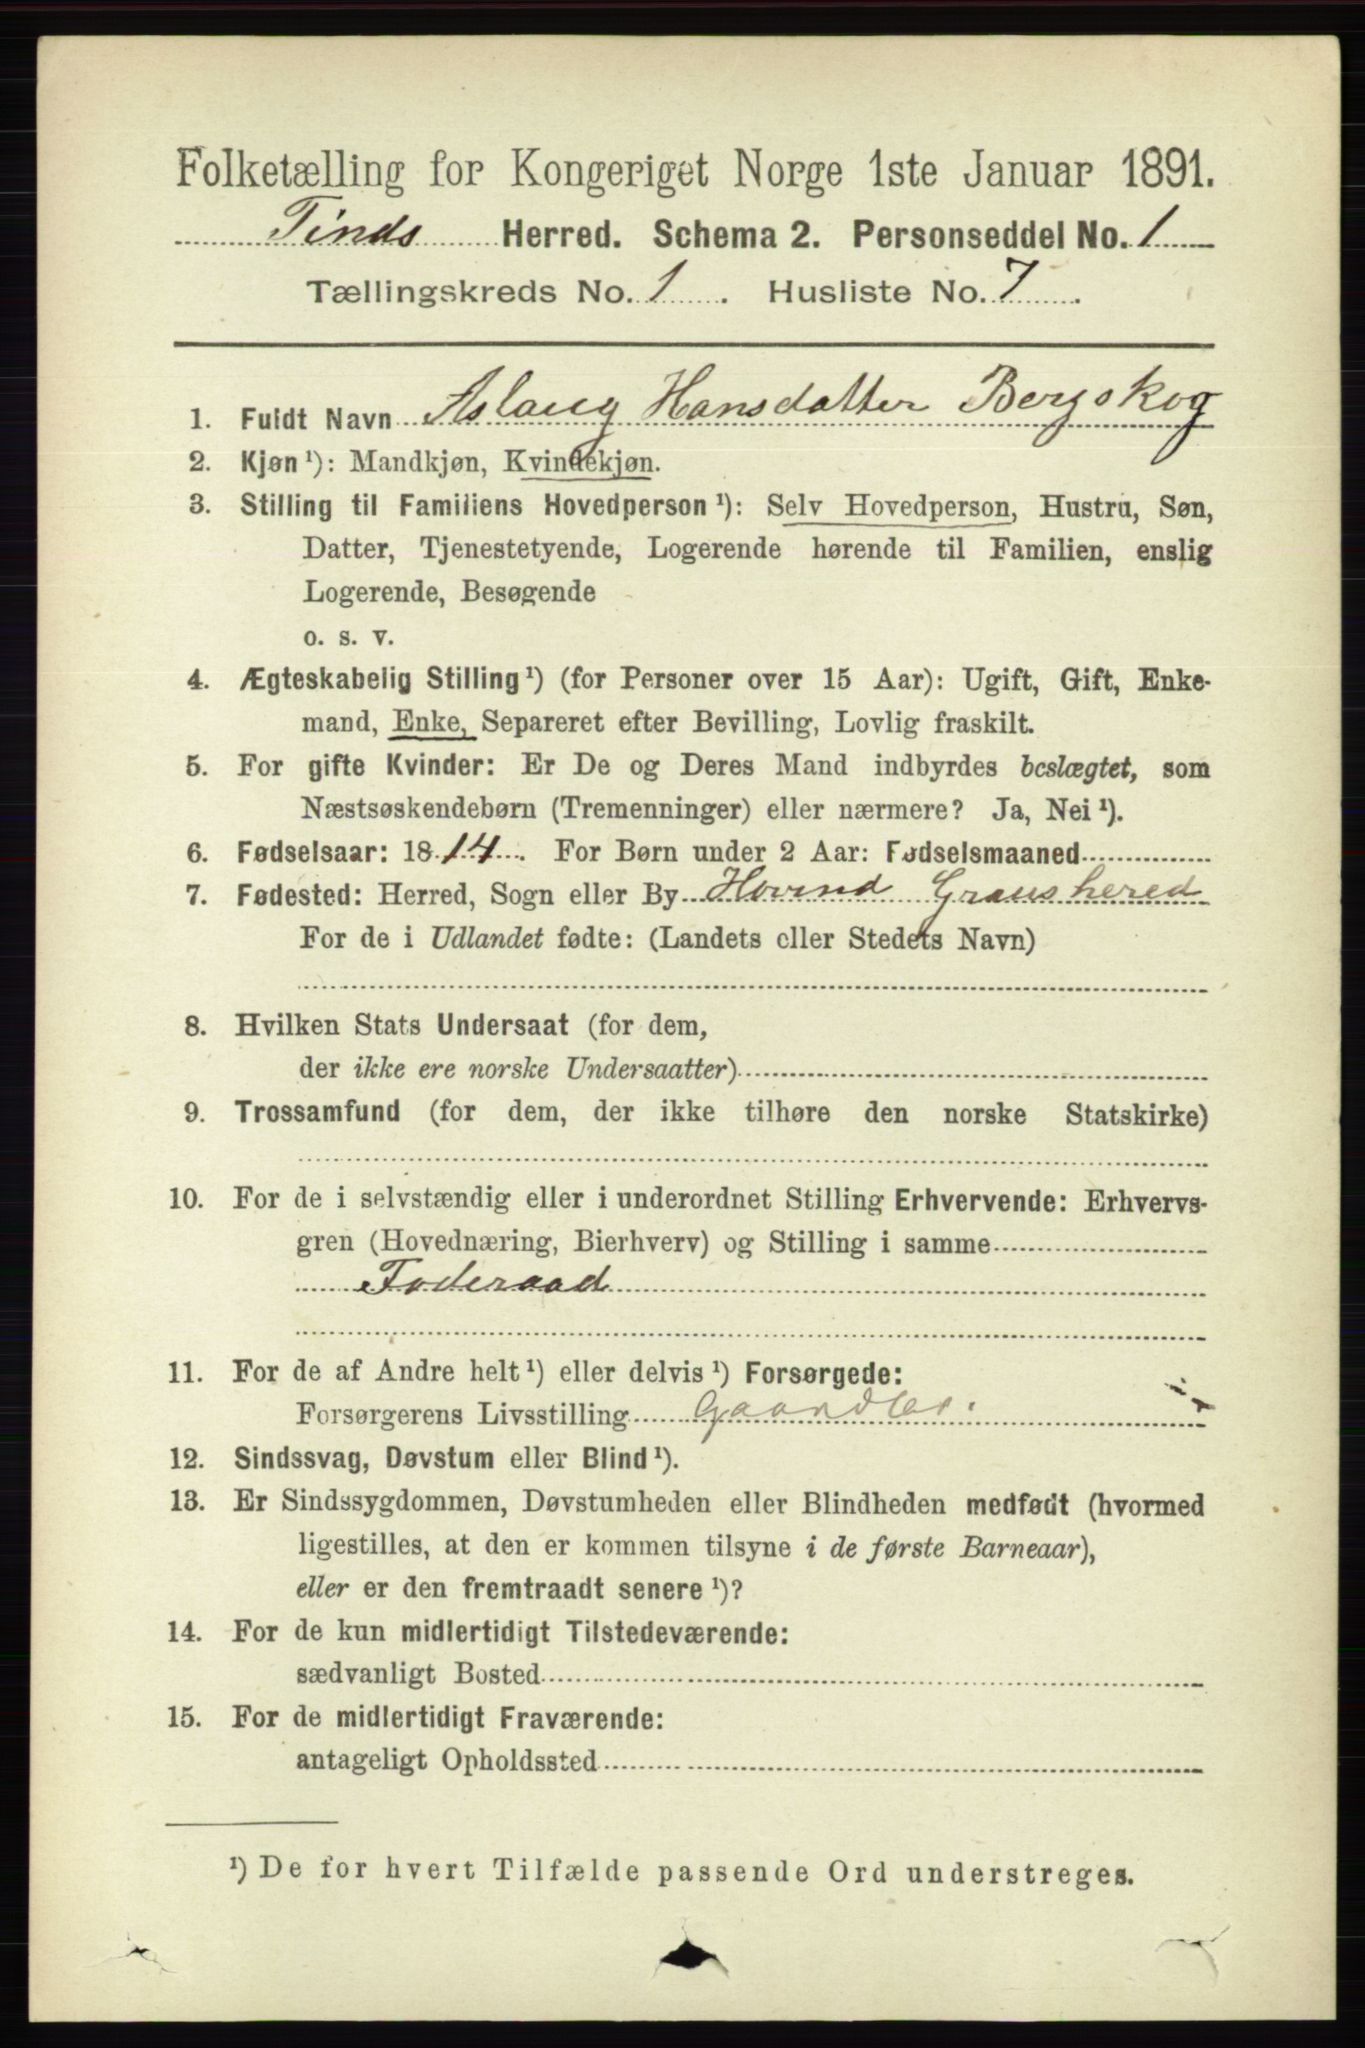 Folketælling for Kongeriget Norge 1ste Januar 1891.
Tinds Herred. Schema 2. Personseddel No. 1
Tællingskreds No. 1. Husliste No. 7.
1. Fuldt Navn Aslaug Hansdatter Bergskog
2. Kjøn ¹): Mandkjøn, Kvindekjøn.
3. Stilling til Familiens Hovedperson ¹): Selv Hovedperson, Hustru, Søn,
Datter, Tjenestetyende, Logerende hørende til Familien, enslig
Logerende, Besøgende
o. s. v.
4. Ægteskabelig Stilling ¹) (for Personer over 15 Aar): Ugift, Gift, Enke-
mand, Enke, Separeret efter Bevilling, Lovlig fraskilt.
5. For gifte Kvinder: Er De og Deres Mand indbyrdes beslægtet, som
Næstsøskendebørn (Tremenninger) eller nærmere? Ja, Nei ¹).
6. Fødselsaar: 1814. For Børn under 2 Aar: Fødselsmaaned
7. Fødested: Herred, Sogn eller By Hovind Gransherred
For de i Udlandet fødte: (Landets eller Stedets Navn)
8. Hvilken Stats Undersaat (for dem,
der ikke ere norske Undersaatter)
9. Trossamfund (for dem, der ikke tilhøre den norske Statskirke)
10. For de i selvstændig eller i underordnet Stilling Erhvervende: Erhvervs-
gren (Hovednæring, Bierhverv) og Stilling i samme
Foderaad
11. For de af Andre helt ¹) eller delvis ¹) Forsørgede:
Forsørgerens Livsstilling
12. Sindssvag, Døvstum eller Blind ¹).
13. Er Sindssygdommen, Døvstumheden eller Blindheden medfødt (hvormed
ligestilles, at den er kommen tilsyne i de første Barneaar),
eller er den fremtraadt senere ¹)?
14. For de kun midlertidigt Tilstedeværende:
sædvanligt Bosted
15. For de midlertidigt Fraværende:
antageligt Opholdssted
¹) De for hvert Tilfælde passende Ord understreges.